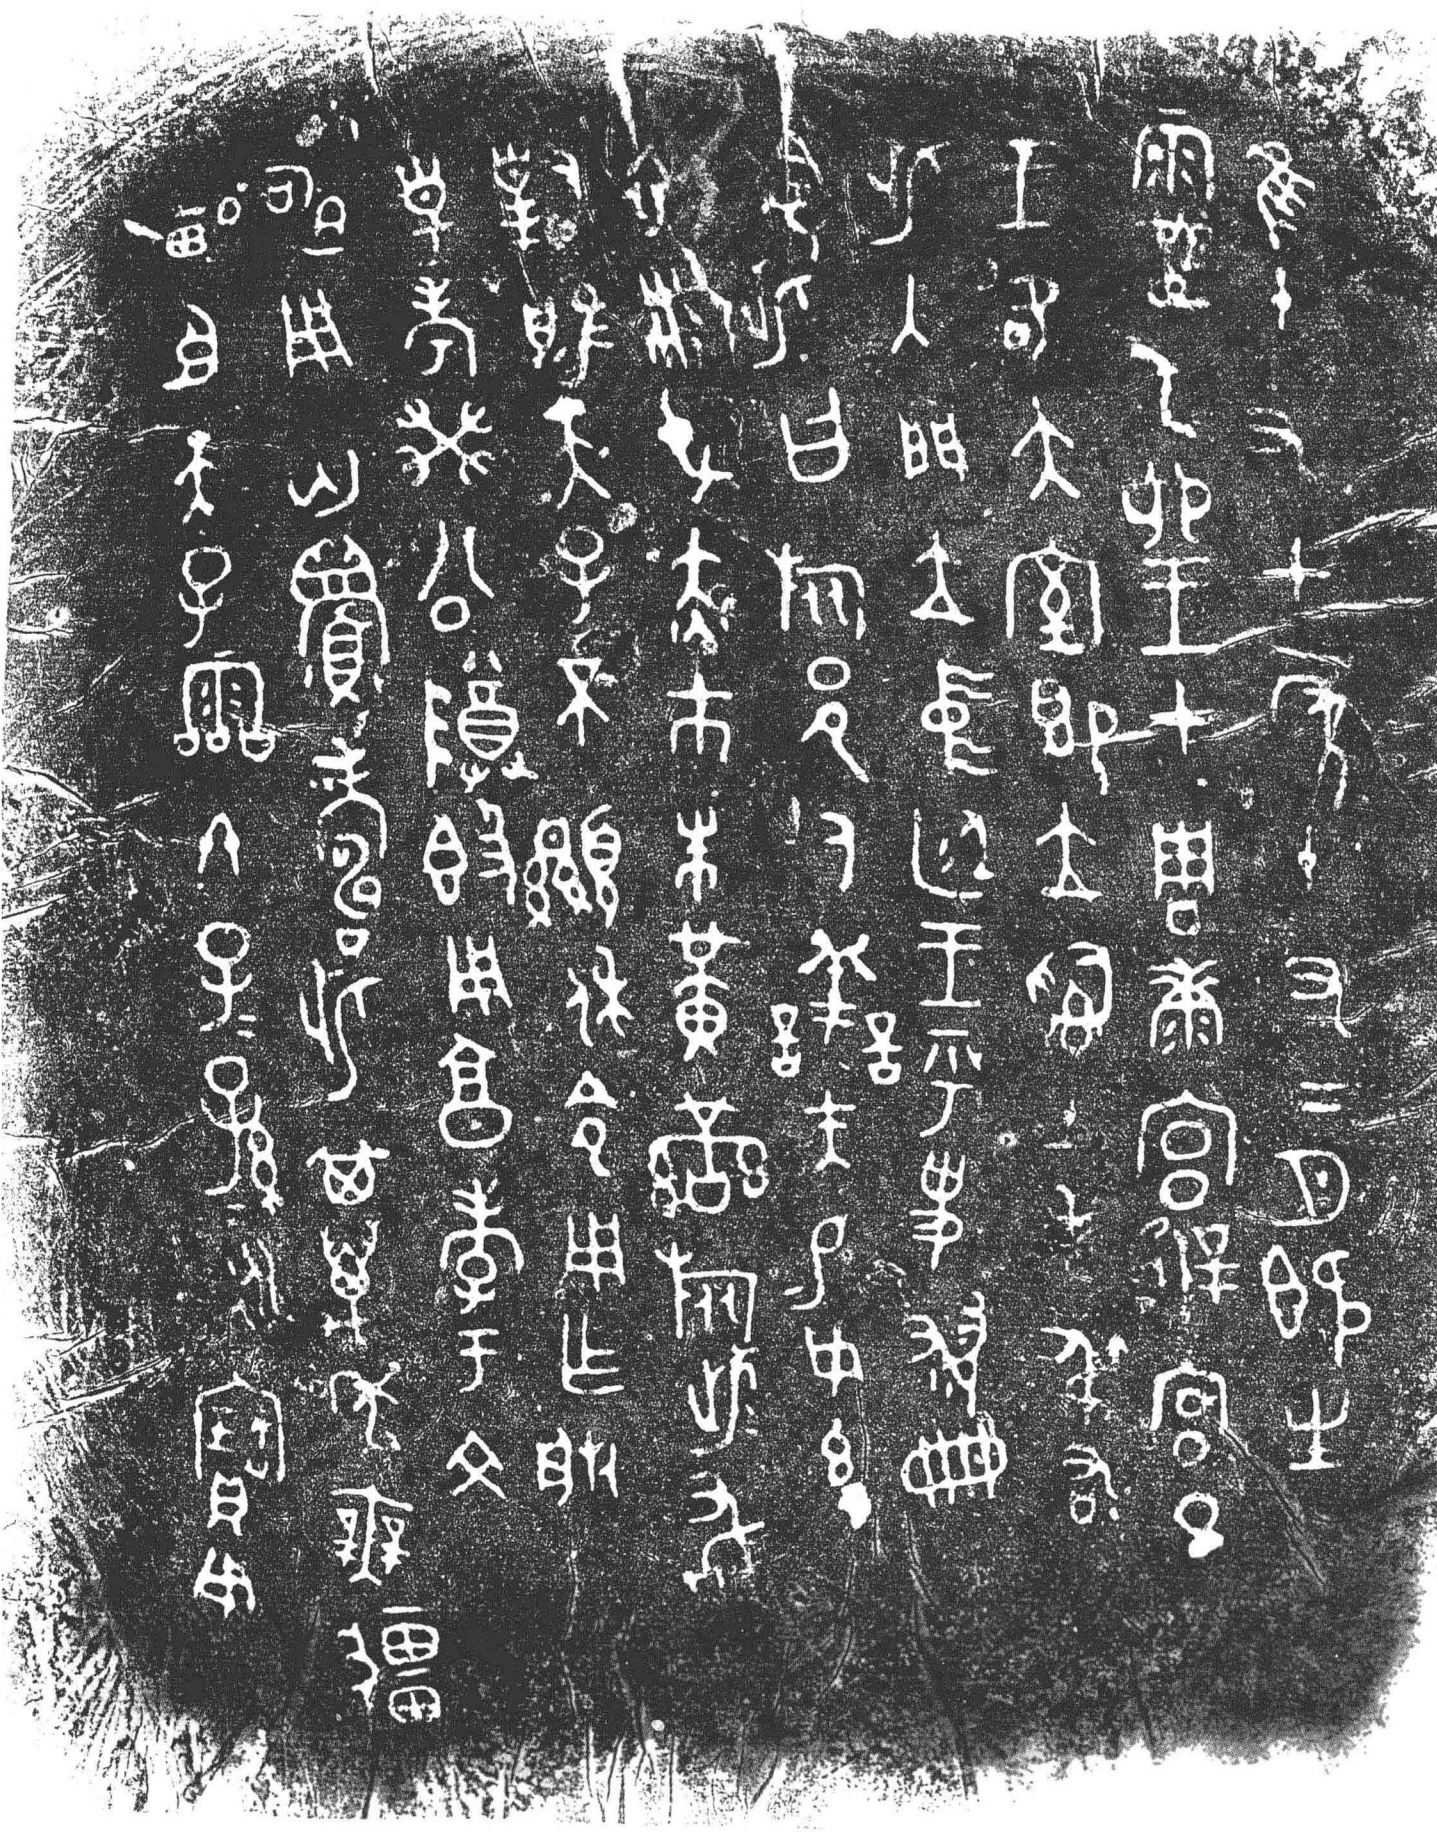 隹十又七年十又二月既生
霸乙卯王才周康宮㣤宮旦
王各大室即立𤔲土毛弔右
此入門立中廷王乎史翏冊
令此曰旅邑人善夫易女玄
衣黹屯赤巿朱黃䜌旅此敢
對揚天子不顯休令用乍朕
皇考癸公𨺅鼎用享孝于文
申用匄眉壽此其萬年無疆
畯臣天子霝冬子子孫孫永寶用